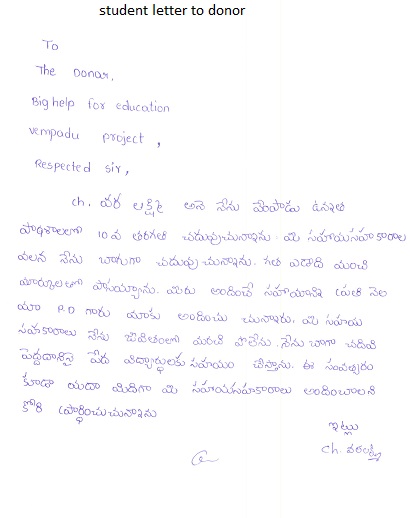 student letter to donor
To
The Donar,
Big help for education
vempadu project,
Respected sir,
ch. వర లక్ష్మి అనే నేను వేంపాడు ఉన్నత
పాఠశాలలో 10 వ తరగతి చదువుచున్నాను. మీ సహాయసహకారాల
వలన నేను బాగుగా చదువు చున్నాను. గత ఏడాది మంచి
మార్కులతో పాసయ్యాను. మీరు అందించే సహాయానికి ప్రతి నెల
మా P.D గారు మాకు అందించు చున్నారు. మీ సహాయ
సహకారాలు నేను జీవితంలో మరచి పోలేను. నేను బాగా చదివి
పెద్దదానినై పేద విద్యార్థులకు సహాయం చేస్తాను. ఈ సంవత్సరం
కూడా యదా మిదిగా మీ సహాయసహకారాలు అందించాలని
కోరి ప్రార్థించుచున్నాను
ఇట్లు
ch. వరలక్ష్మి